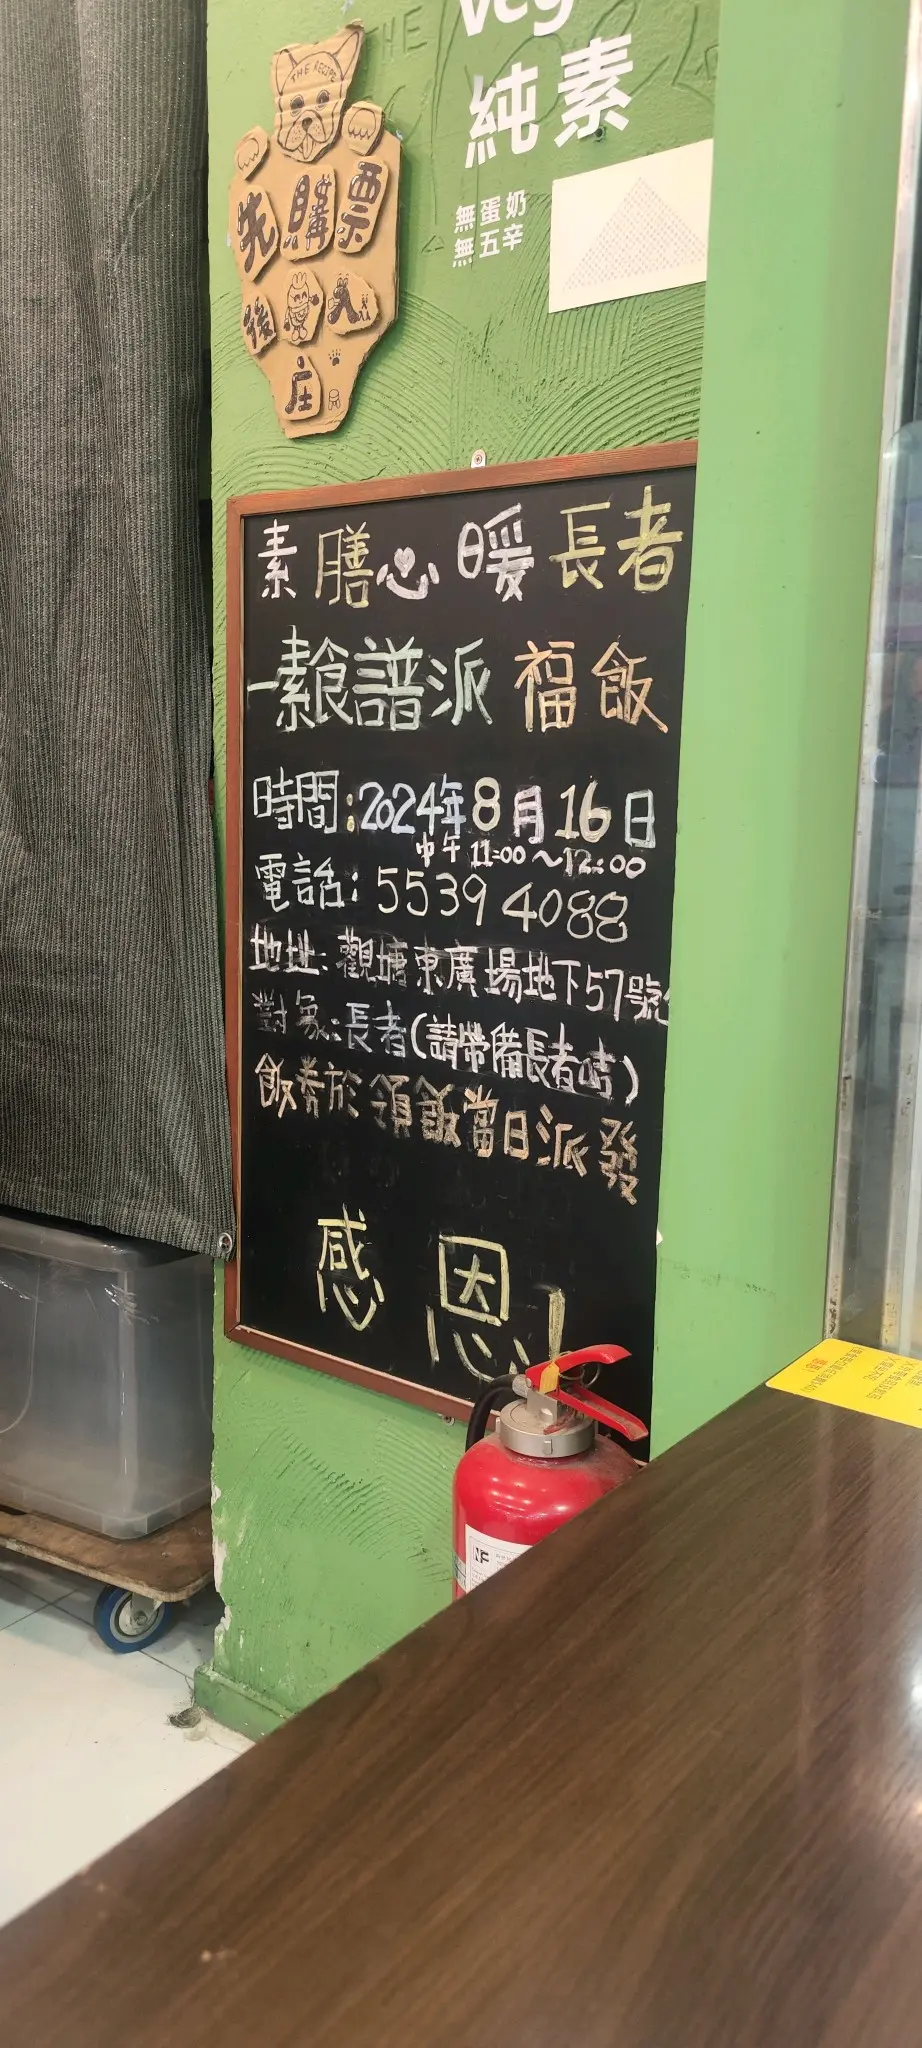 veg
純素
無蛋奶
無五辛
THE RECIPE
先購票
後入
庄
素膳心暖長者
素食譜派福飯
時間:2024年8月16日
中午 11:00～12:00
電話:5539 4088
地址:觀塘東廣場地下57號
對象:長者(請帶備長者咭)
飯券於領飯當日派發
感恩